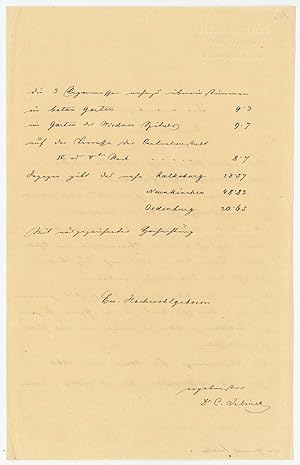 die 3 Regenmesser nahezu übereinstimmen
im botan. Garten . . . . . 9·3
im Garten des Wiedner Spitales 9·7
auf der Terrasse der Centralanstalt
IV ter Stock . . . . . 8·7
dagegen gibt der nahe Kalksburg 23·37
Neunkirchen 48·82
Oedenburg 20·63
Mit ausgezeichneter Hochachtung
Euer Hochwohlgeboren
ergebenster
Dr C. Jelinek